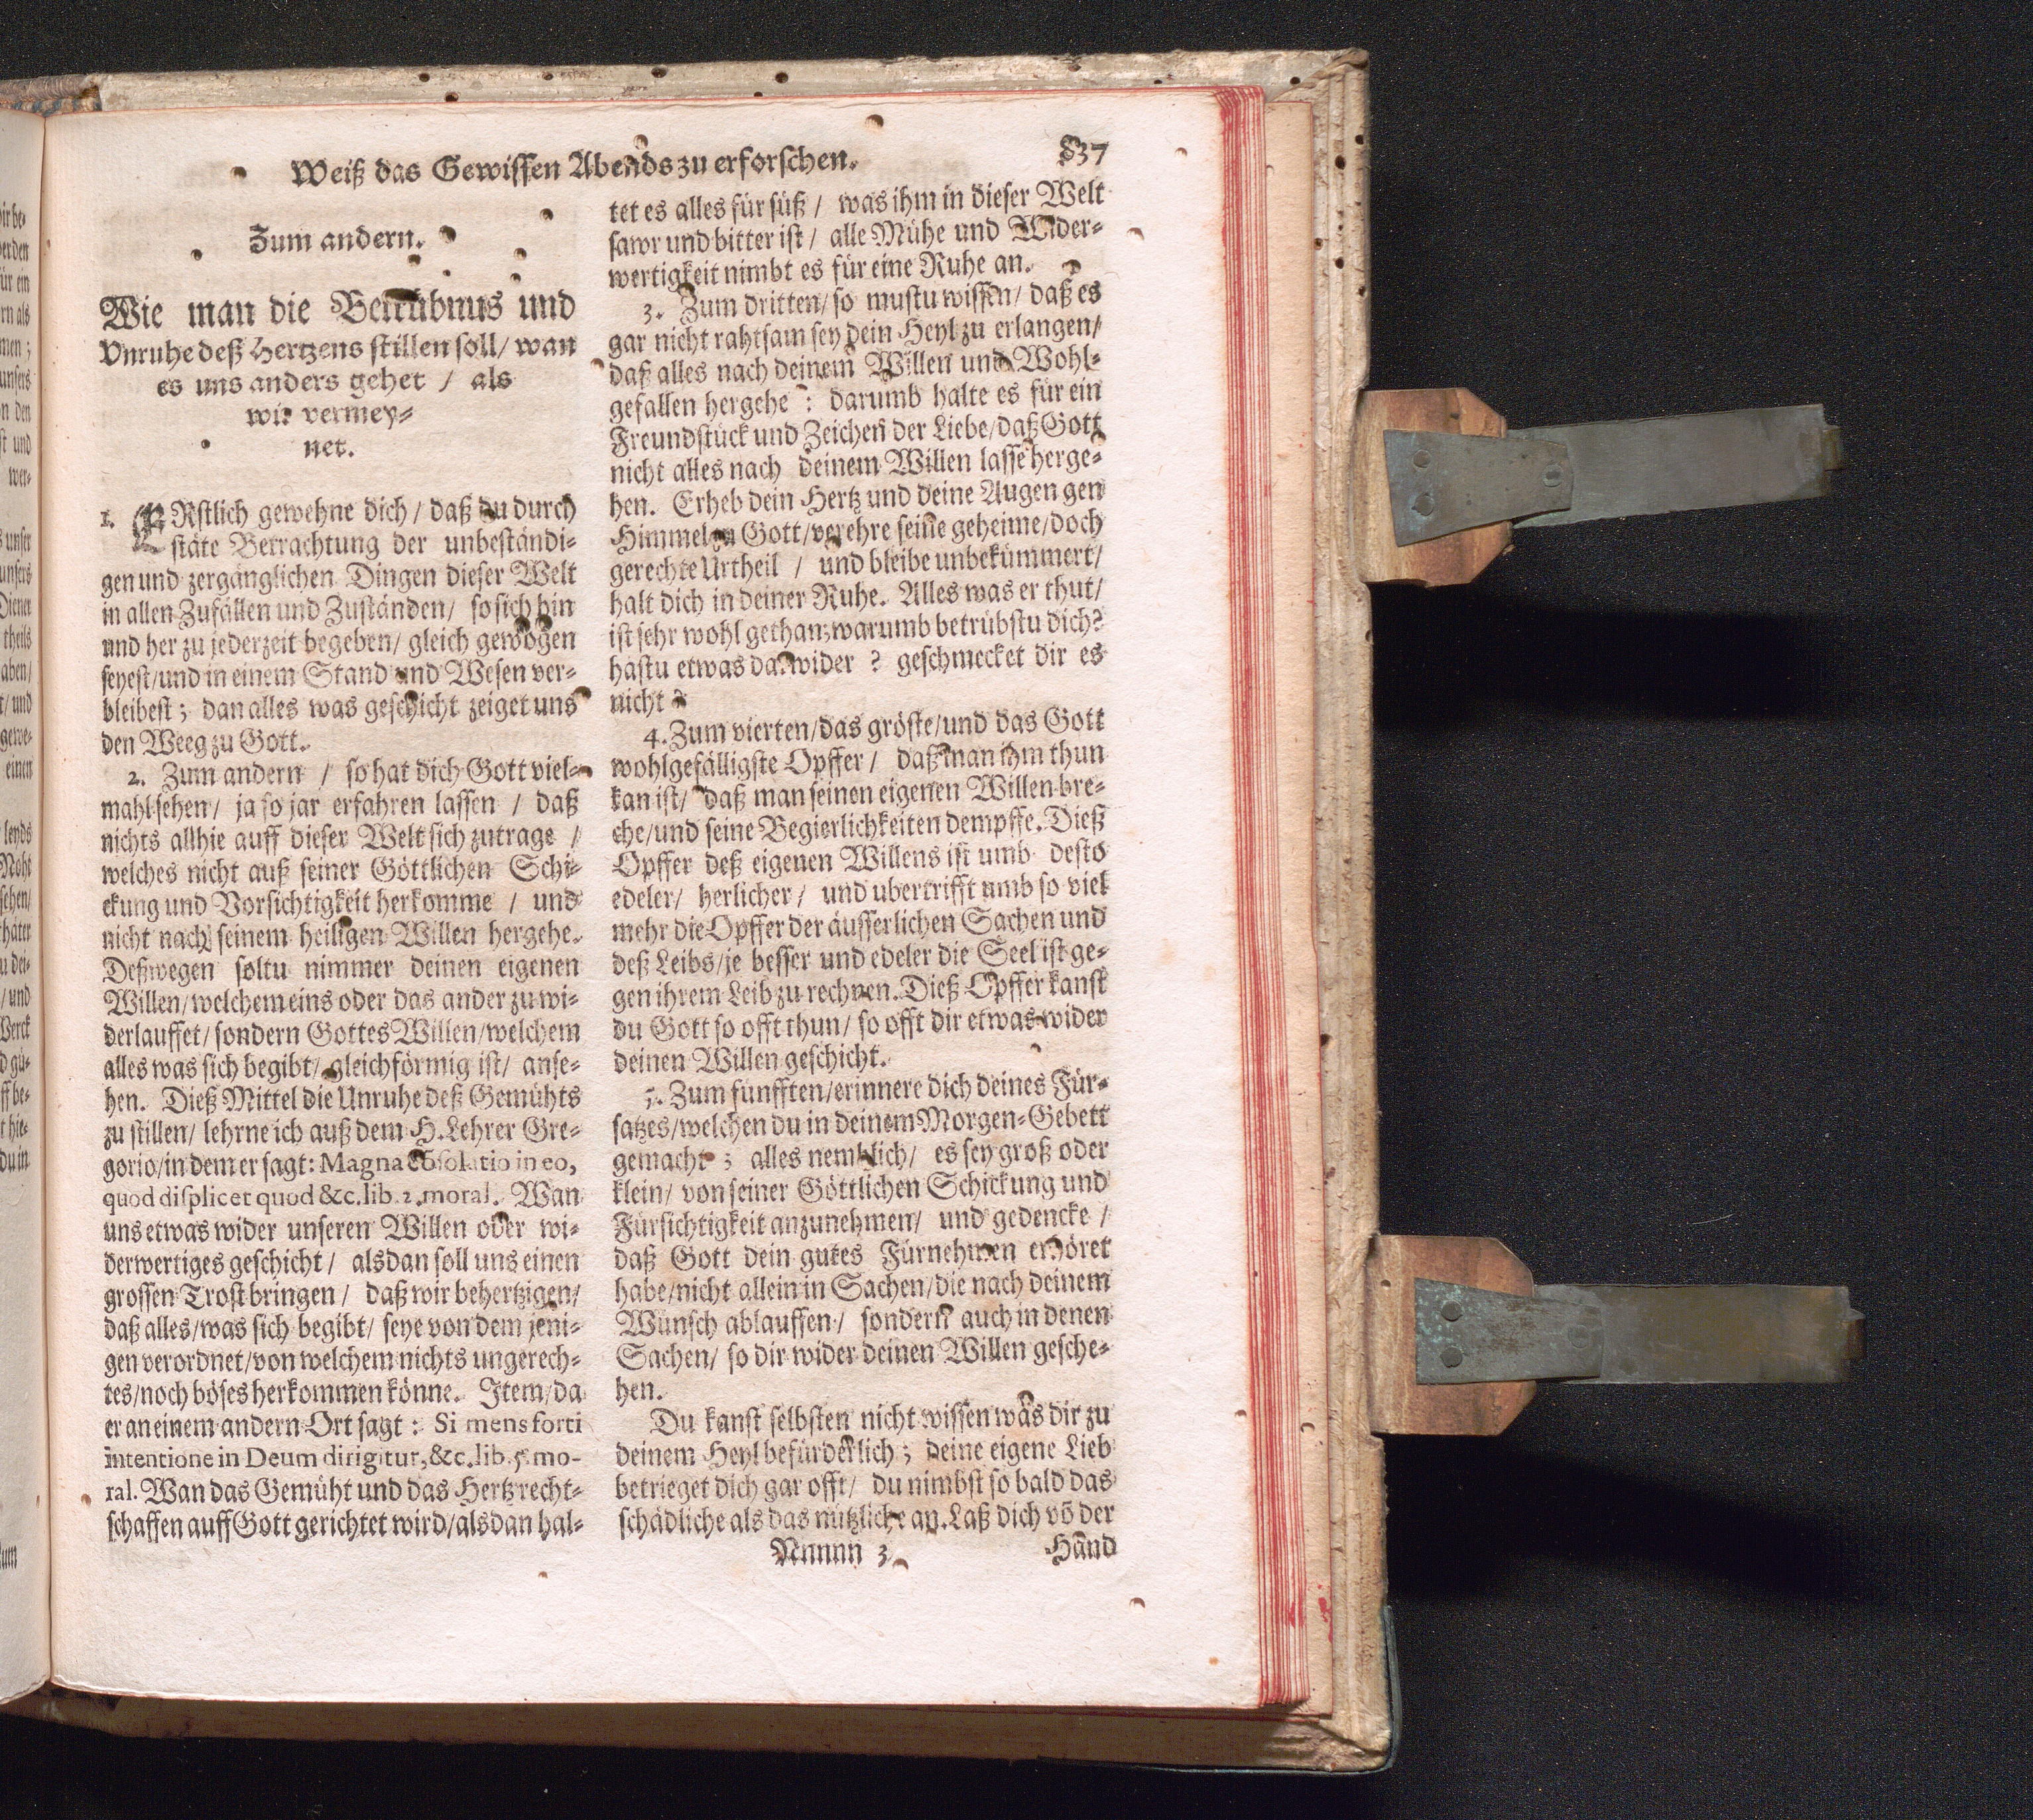 Weiß das Gewissen Abends zu erforschen.
837
Zum andern.
Wie man die Betrübnus und
Unruhe deß Hertzens stillen soll/ wan
es uns anders gehet / als
wir vermey-
net.
1. ERstlich gewehne dich / daß du durch
stäte Betrachtung der unbeständi-
gen und zergänglichen Dingen dieser Welt
in allen Zufällen und Zuständen/ so sich hin
und her zu jederzeit begeben/ gleich gewogen
seyest/und in einem Stand und Wesen ver-
bleibest; dan alles was geschicht zeiget uns
den Weeg zu Gott.
2. Zum andern / so hat dich Gott viel-
mahl sehen/ ja so jar erfahren lassen / daß
nichts allhie auff dieser Welt sich zutrage /
welches nicht auß seiner Göttlichen Schi-
ckung und Vorsichtigkeit herkomme / und
nicht nach seinem heiligen Willen hergehe.
Deßwegen soltu nimmer deinen eigenen
Willen/welchem eins oder das ander zu wi-
derlauffet/sondern Gottes Willen/welchem
alles was sich begibt/ gleichförmig ist/ anse-
hen. Dieß Mittel die Unruhe deß Gemühts
zu stillen/ lehrne ich auß dem H. Lehrer Gre-
gorio/in dem er sagt: Magna cōsolatio in eo,
quod displicet quod &c. lib. 2. moral. Wan
uns etwas wider unseren Willen oder wi-
derwertiges geschicht/ alsdan soll uns einen
grossen Trost bringen / daß wir behertzigen/
daß alles/was sich begibt/ seye von dem jeni-
gen verordnet/von welchem nichts ungerech-
tes/noch böses herkommen könne. Item/da
er an einem andern Ort sagt: Si mens forti
intentione in Deum dirigitur, &c. lib. 5. mo-
ral. Wan das Gemüht und das Hertz recht-
schaffen auff Gott gerichtet wird/alsdan hal-
tet es alles für süß / was ihm in dieser Welt
sawr und bitter ist / alle Mühe und Wider-
wertigkeit nimbt es für eine Ruhe an.
3. Zum dritten/ so mustu wissen/ daß es
gar nicht rahtsam sey dein Heyl zu erlangen/
daß alles nach deinem Willen und Wohl-
gefallen hergehe : darumb halte es für ein
Freundstück und Zeichen der Liebe/daß Gott
nicht alles nach deinem Willen lasse herge-
hen. Erheb dein Hertz und deine Augen gen
Himmel zu Gott/verehre seine geheime/doch
gerechte Urtheil / und bleibe unbekümmert/
halt dich in deiner Ruhe. Alles was er thut/
ist sehr wohl gethan; warumb betrübstu dich?
hastu etwas darwider ? geschmecket dir es
nicht ?
4. Zum vierten/das gröste/und das Gott
wohlgefälligste Opffer / daß man ihm thun
kan ist/ daß man seinen eigenen Willen bre-
che/und seine Begierlichkeiten dempffe. Dieß
Opffer deß eigenen Willens ist umb desto
edeler/ herlicher/ und ubertrifft umb so viel
mehr die Opffer der äusserlichen Sachen und
deß Leibs/je besser und edeler die Seel ist ge-
gen ihrem Leib zu rechnen. Dieß Opffer kanst
du Gott so offt thun/ so offt dir etwas wider
deinen Willen geschicht.
5. Zum fünfften/erinnere dich deines Für-
satzes/welchen du in deinem Morgen-Gebett
gemacht ; alles nemblich/ es sey groß oder
klein/ von seiner Göttlichen Schickung und
Fürsichtigkeit anzunehmen/ und gedencke /
daß Gott dein gutes Fürnehmen erhöret
habe/nicht allein in Sachen/die nach deinem
Wunsch ablauffen / sondern auch in denen
Sachen/ so dir wider deinen Willen gesche-
hen.
Du kanst selbsten nicht wissen was dir zu
deinem Heyl befürderlich ; deine eigene Lieb
betrieget dich gar offt/ du nimbst so bald das
schädliche als das nützliche an. Laß dich vō der
Nnnnn 3
Hand